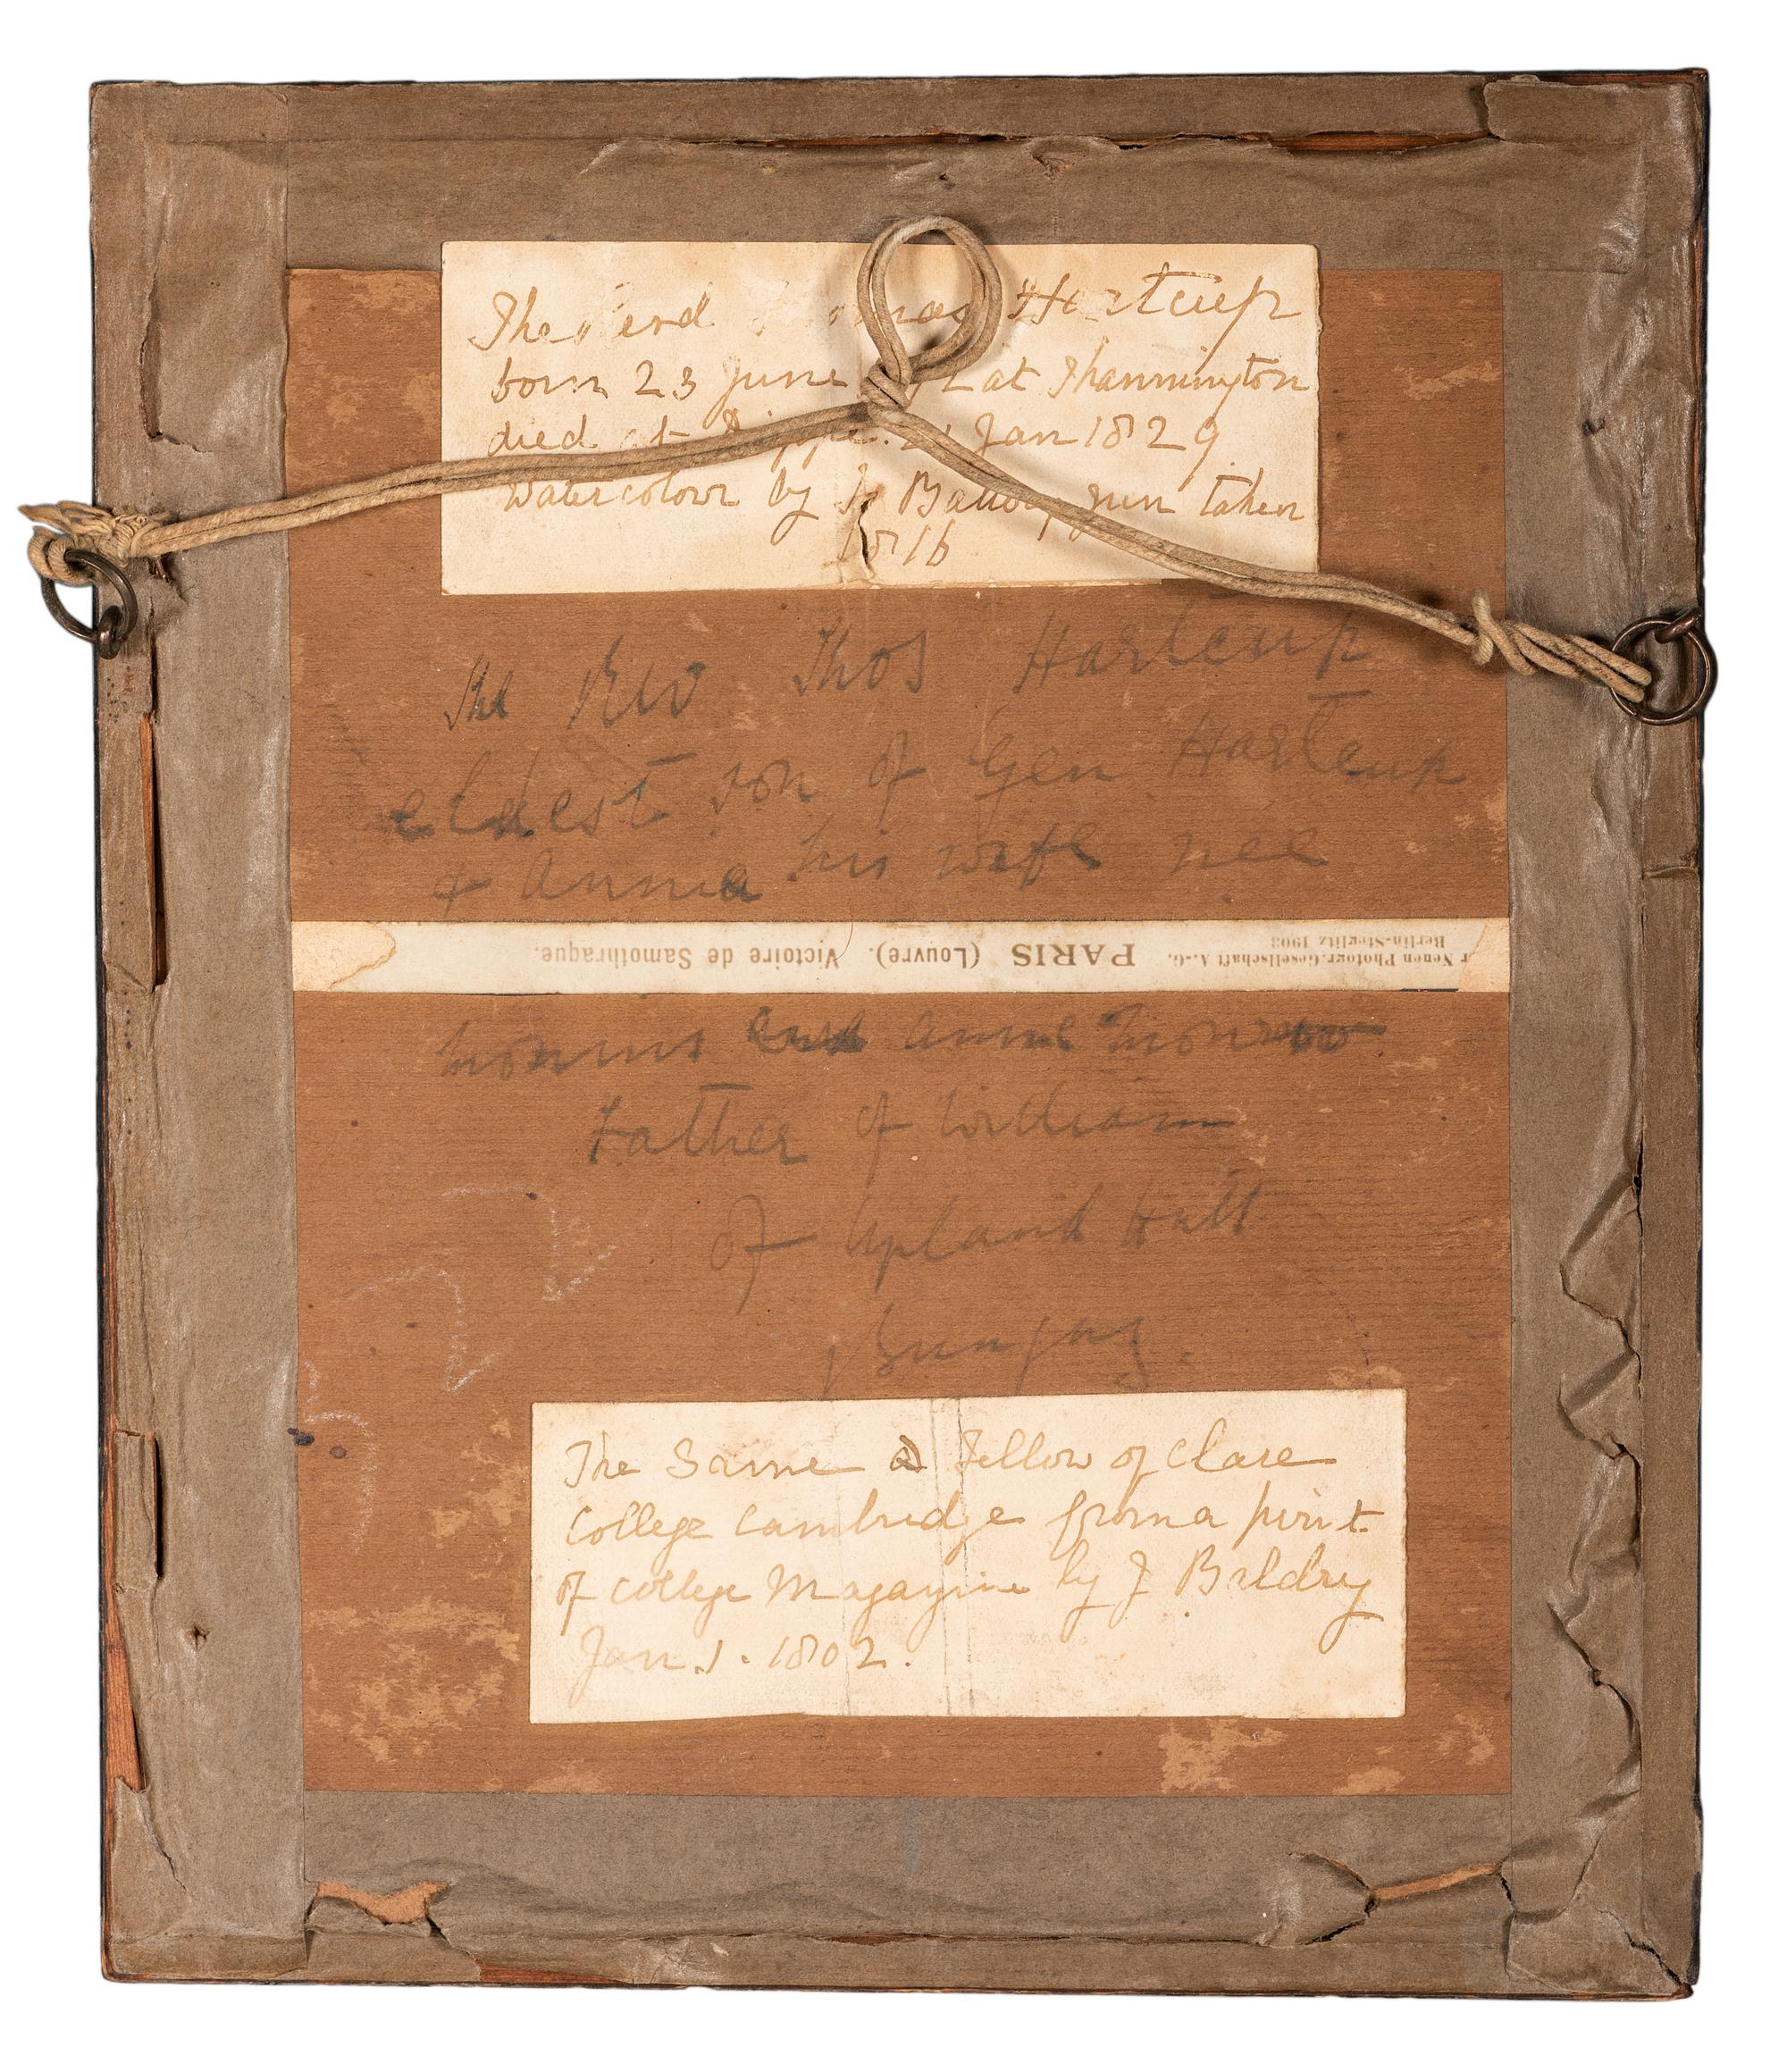 The Hartcup
born 23 June at Thannington
died at Jan 1829
Watercolour by Jun taken
1816
The Rev Thos Hartcup
eldest son of Gen Hartcup
& Anna his wife nee
r Neuen Photogr. Gesellschaft A.-G. PARIS (Louvre). Victoire de Samothraque.
Berlin-Steglitz 1903
Father of William
of Upland Hall
Bungay.
The Same a Fellow of Clare
College Cambridge from a print
of College Magazine by J Baldrey
Jan. 1. 1802.